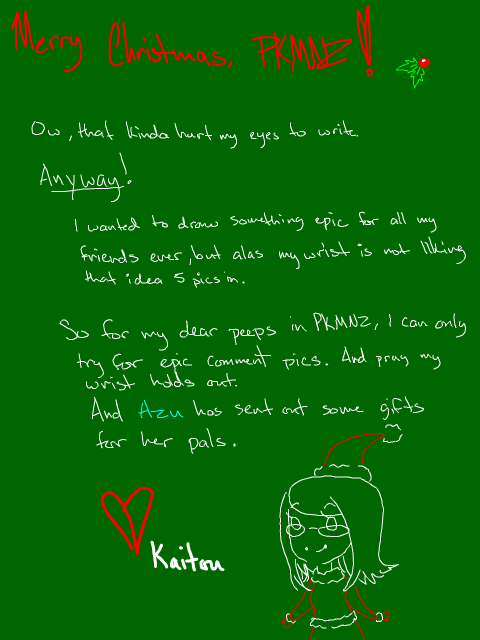 Merry Christmas, PKMNZ!
Ow, that kinda hurt my eyes to write.
Anyway!
I wanted to draw something epic for all my
friends ever, but alas my wrist is not liking
that idea 5 pics in.
So for my dear peeps in PKMNZ, I can only
try for epic comment pics. And pray my
wrist holds out.
And Azu has sent out some gifts
for her pals.
Kaitou